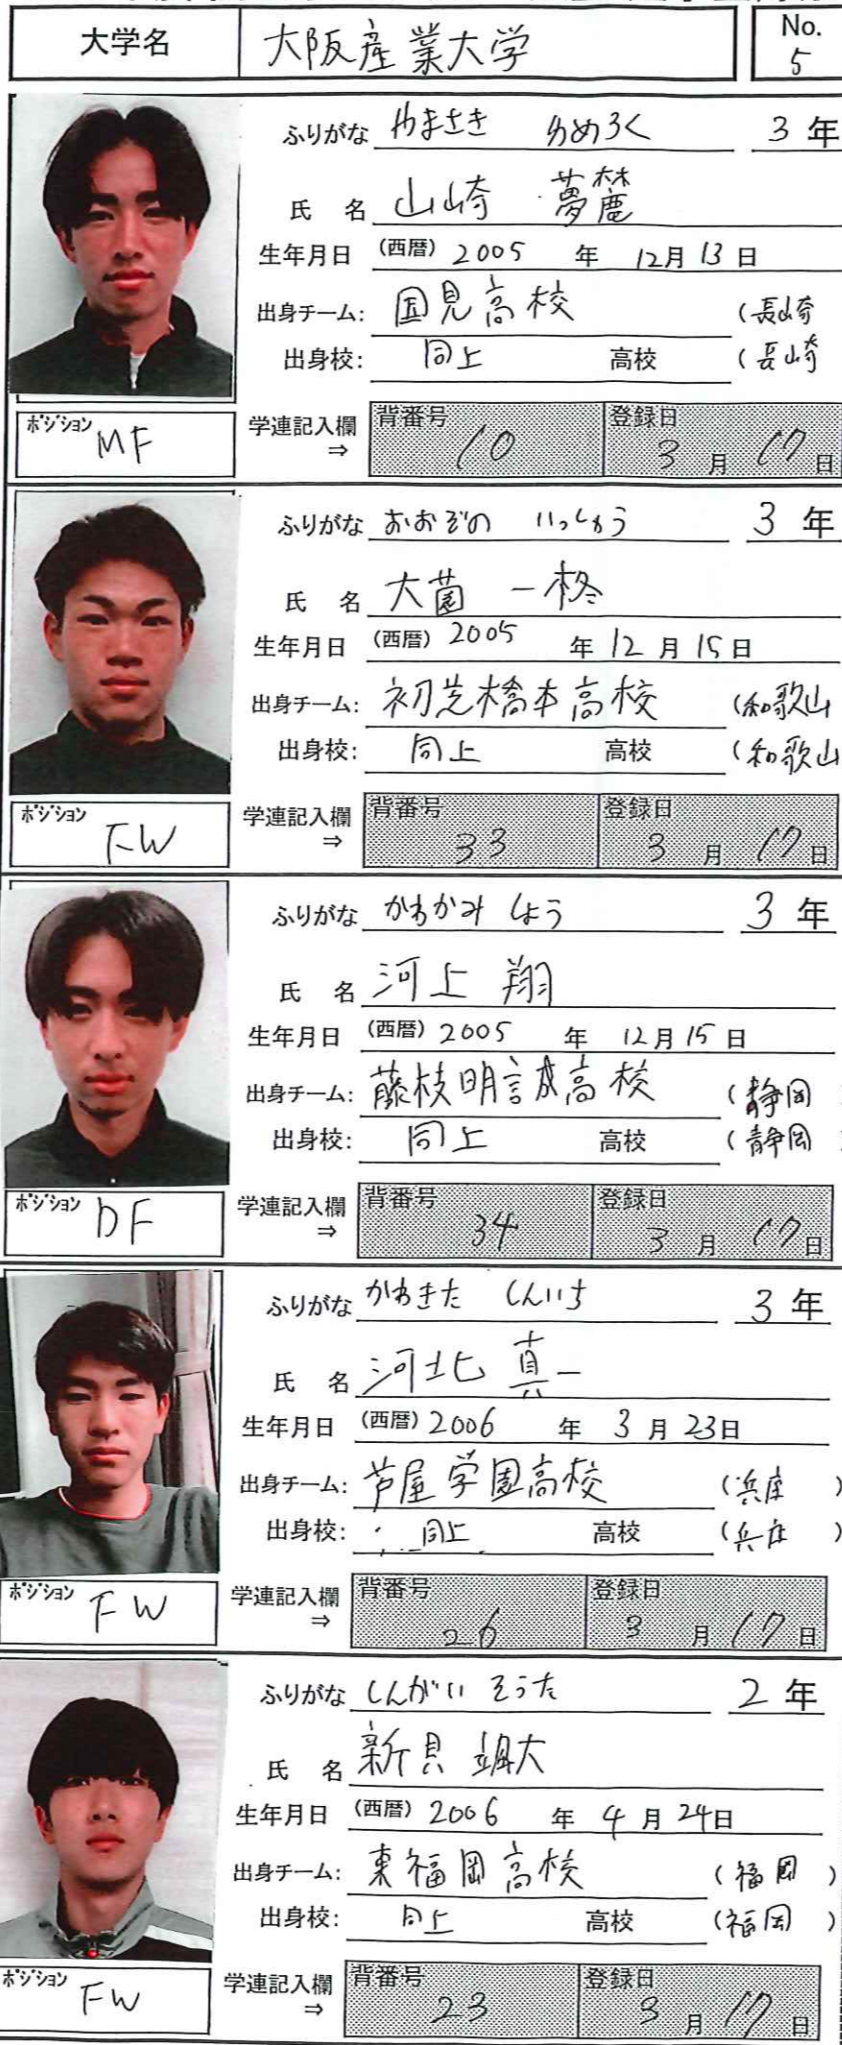 大学名 大阪産業大学 No. 5
ふりがな やまさき ゆめろく 3年
氏 名 山崎 夢麓
生年月日 (西暦) 2005 年 12月 13 日
出身チーム: 国見高校 (長崎
出身校: 同上 高校 (長崎
ポジション MF 学連記入欄 ⇒ 背番号 10 登録日 3 月 17 日
ふりがな おおぞの いっしゅう 3 年
氏 名 大薗 一柊
生年月日 (西暦) 2005 年 12 月 15 日
出身チーム: 初芝橋本高校 (和歌山
出身校: 同上 高校 (和歌山
ポジション FW 学連記入欄 ⇒ 背番号 33 登録日 3 月 17 日
ふりがな かわかみ しょう 3 年
氏 名 河上 翔
生年月日 (西暦) 2005 年 12月 15 日
出身チーム: 藤枝明誠高校 (静岡
出身校: 同上 高校 (静岡
ポジション DF 学連記入欄 ⇒ 背番号 34 登録日 3 月 17 日
ふりがな かわきた しんいち 3 年
氏 名 河北 真一
生年月日 (西暦) 2006 年 3 月 23日
出身チーム: 芦屋学園高校 (兵庫 )
出身校: 同上 高校 (兵庫 )
ポジション FW 学連記入欄 ⇒ 背番号 26 登録日 3 月 17 日
ふりがな しんがい そうた 2 年
氏 名 新貝 颯大
生年月日 (西暦) 2006 年 4 月 24日
出身チーム: 東福岡高校 (福岡 )
出身校: 同上 高校 (福岡 )
ポジション FW 学連記入欄 ⇒ 背番号 23 登録日 3 月 17 日